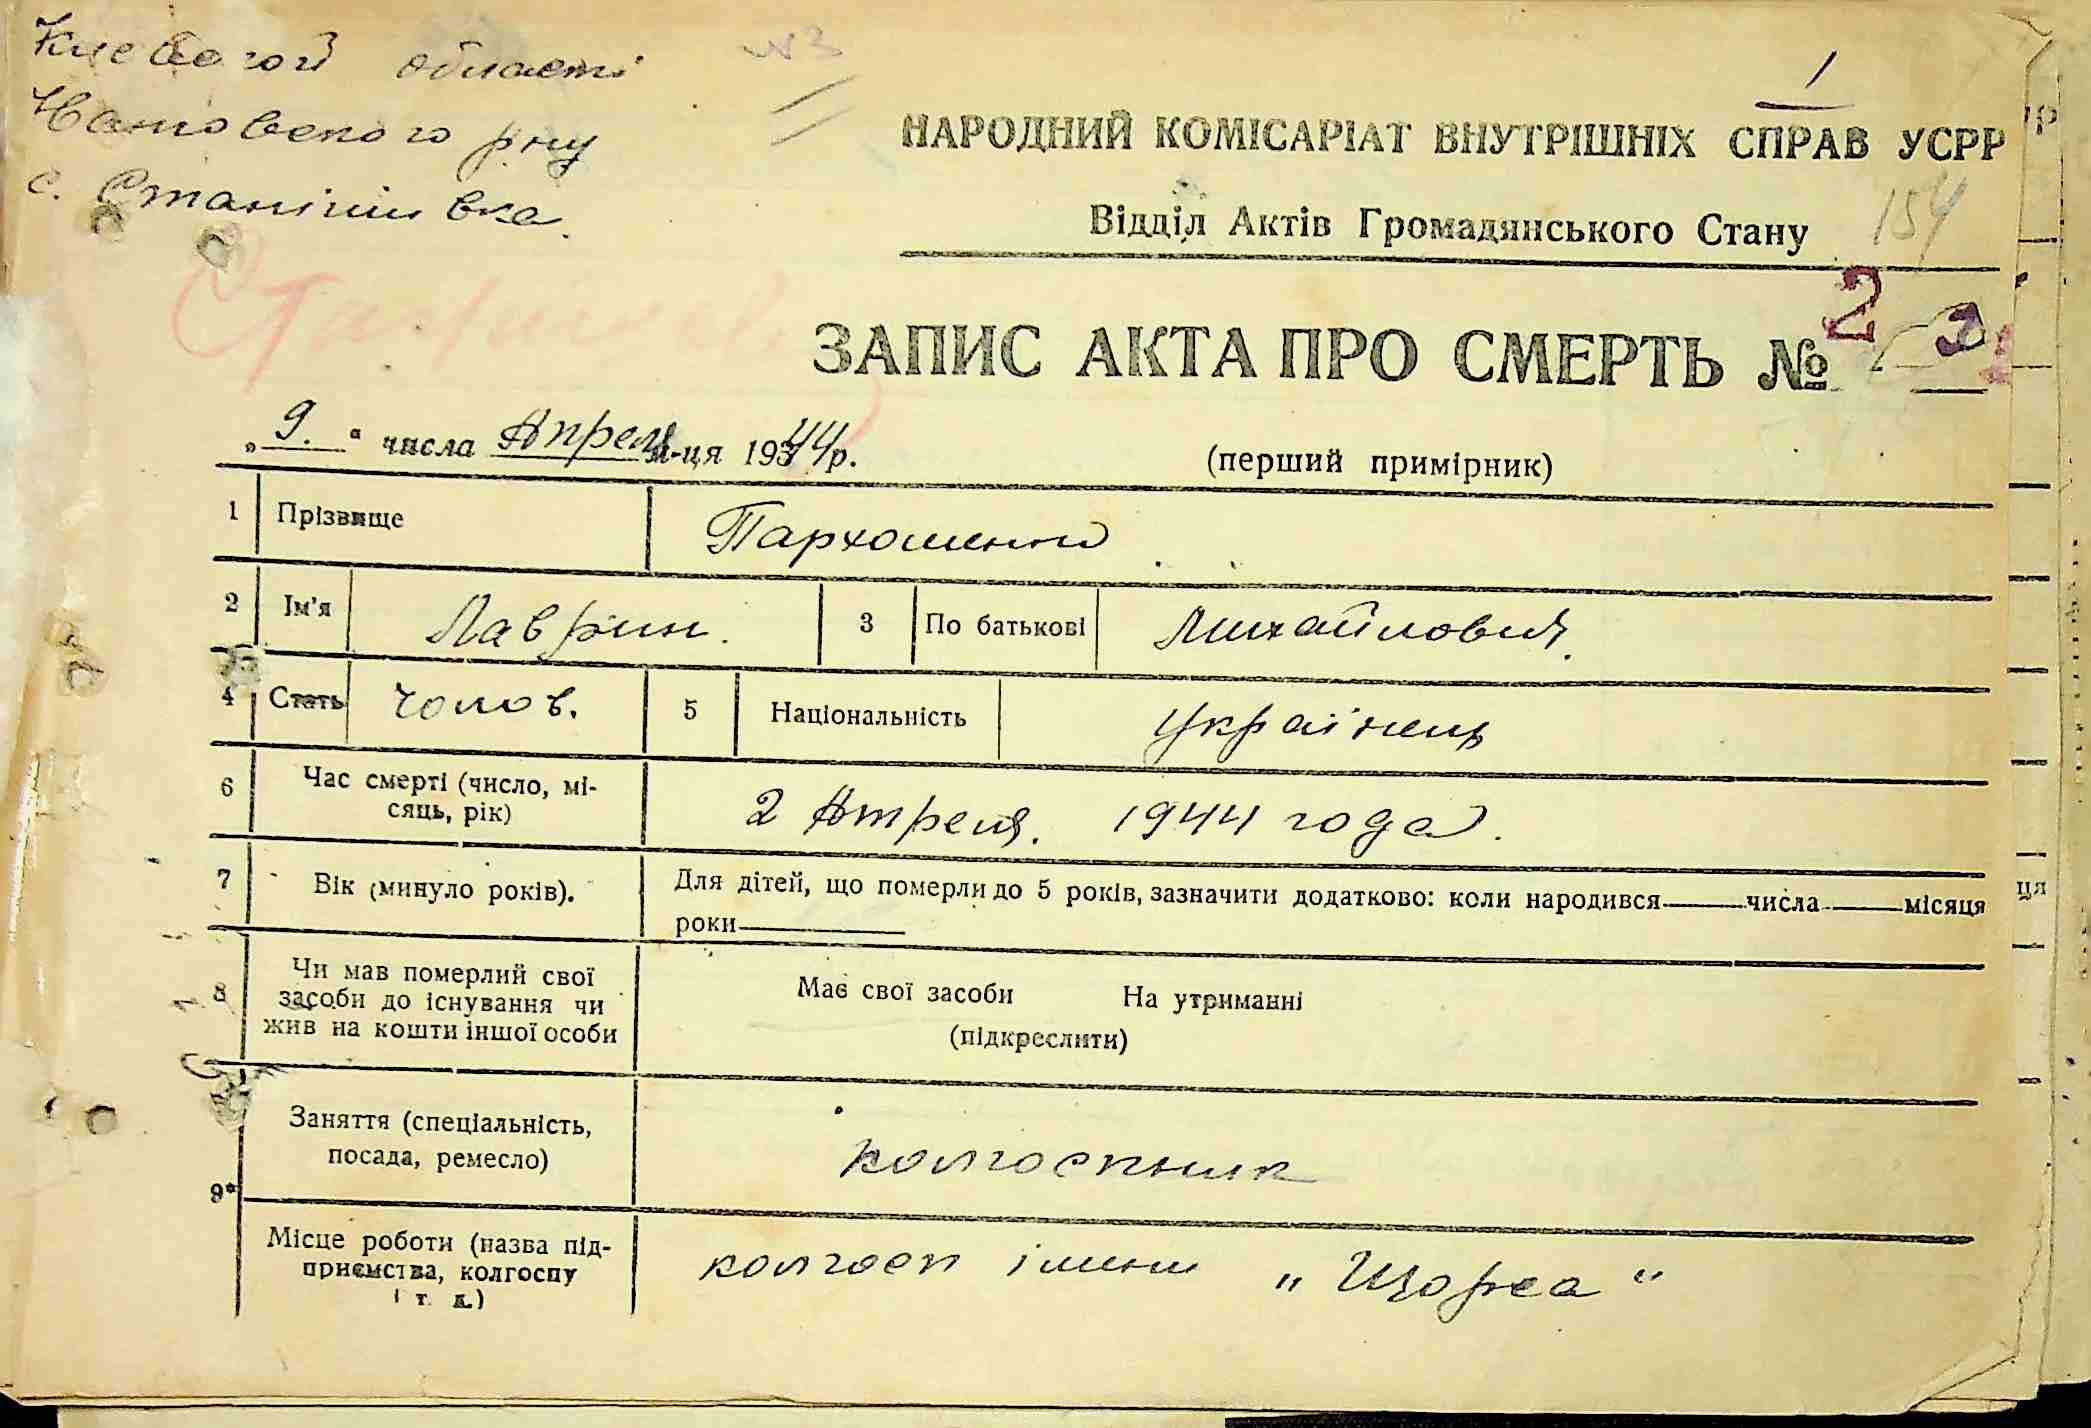 Киевської області
с. Станішівка
№3
1
НАРОДНИЙ КОМІСАРІАТ ВНУТРІШНІХ СПРАВ УСРР
Відділ Актів Громадянського Стану
154
ЗАПИС АКТА ПРО СМЕРТЬ № 2
„9.“ числа Апреля м-ця 1944 р.
(перший примірник)
1 Прізвище Пархоменко
2 Ім'я Лаврін. 3 По батькові Михайлович.
4 Стать чолов. 5 Національність українець
6 Час смерті (число, мі-
сяць, рік) 2 Апреля. 1944 года.
7 Вік (минуло років). Для дітей, що померли до 5 років, зазначити додатково: коли народився числа місяця
роки
8 Чи мав померлий свої
засоби до існування чи
жив на кошти іншої особи
Має свої засоби На утриманні
(підкреслити)
Заняття (спеціальність,
посада, ремесло) колгоспник
9*
Місце роботи (назва під-
приємства, колгоспу
і т. д.)
колгосп імени „Щорса“
ця